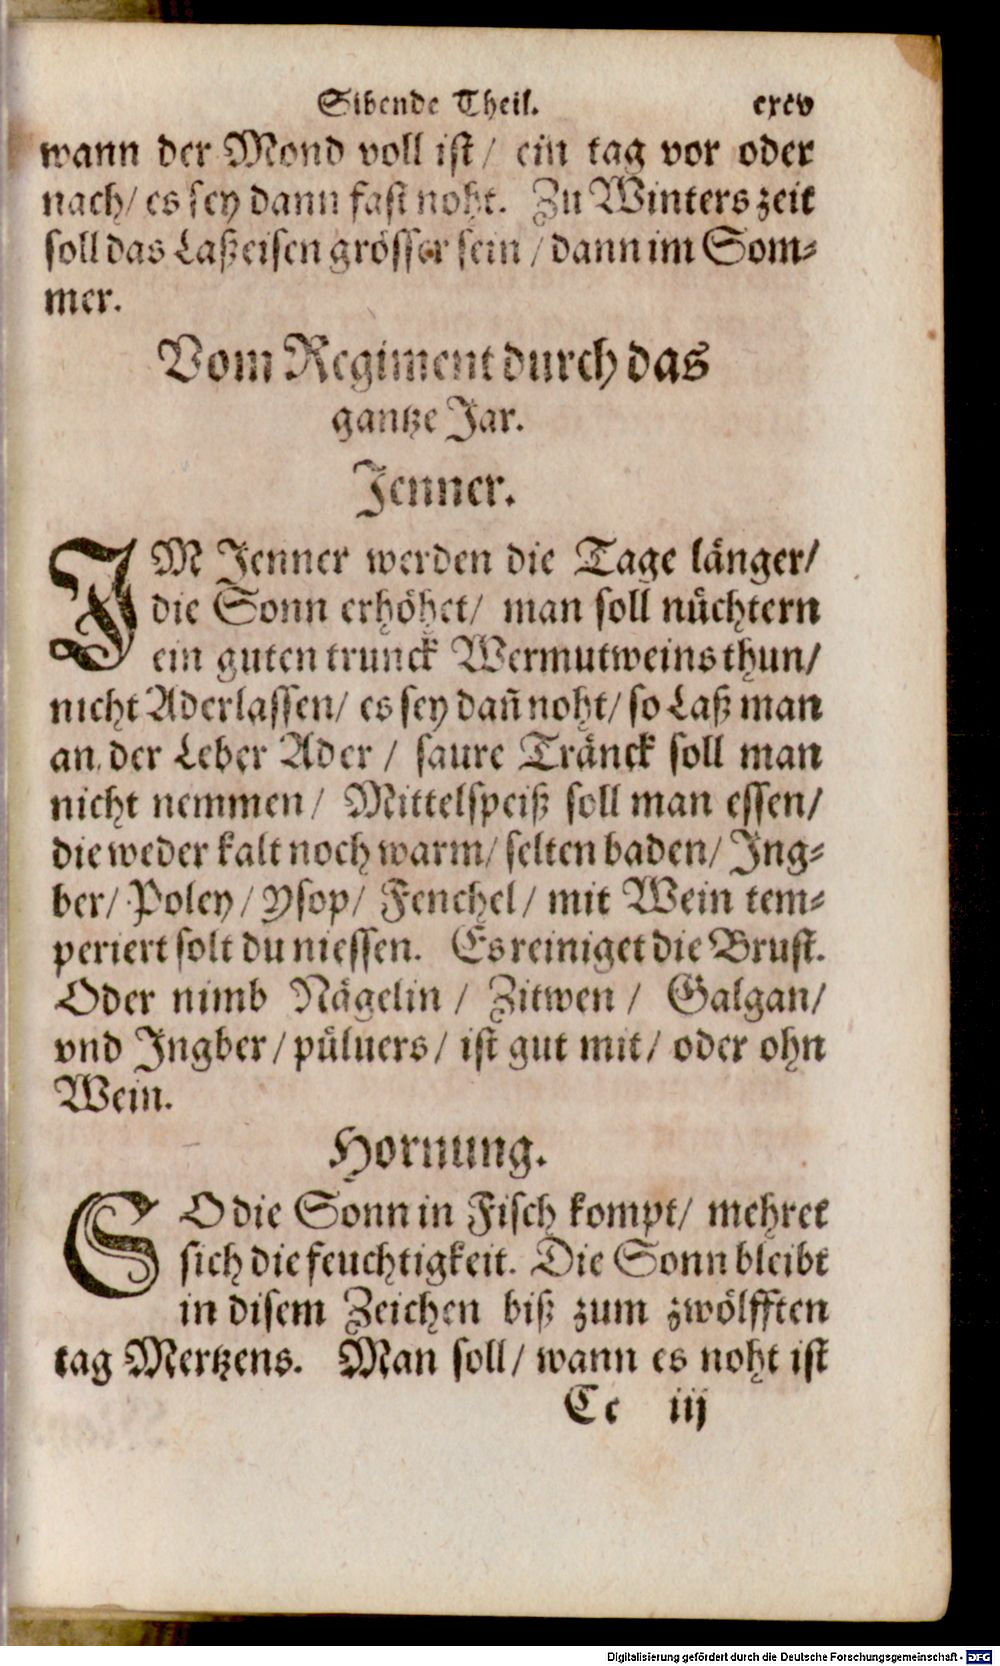 Sibende Theil. cxcv
wann der Mond voll ist/ ein tag vor oder
nach/ es sey dann fast noht. Zu Winters zeit
soll das Laßeisen grösser sein / dann im Som⸗
mer.
Vom Regiment durch das
gantze Jar.
Jenner.
IM Jenner werden die Tage länger/
die Sonn erhöhet/ man soll nüchtern
ein guten trunck Wermutweins thun/
nicht Aderlassen/ es sey dañ noht/ so Laß man
an der Leber Ader / saure Tränck soll man
nicht nemmen/ Mittelspeiß soll man essen/
die weder kalt noch warm/ selten baden/ Ing⸗
ber/ Poley / Ysop/ Fenchel/ mit Wein tem⸗
periert solt du niessen. Es reiniget die Brust.
Oder nimb Nägelin / Zitwen / Galgan/
vnd Ingber / pülvers/ ist gut mit/ oder ohn
Wein.
Hornung.
SO die Sonn in Fisch kompt/ mehret
sich die feuchtigkeit. Die Sonn bleibt
in disem Zeichen biß zum zwölfften
tag Mertzens. Man soll/ wann es noht ist
Cc iij
Digitalisierung gefördert durch die Deutsche Forschungsgemeinschaft - DFG